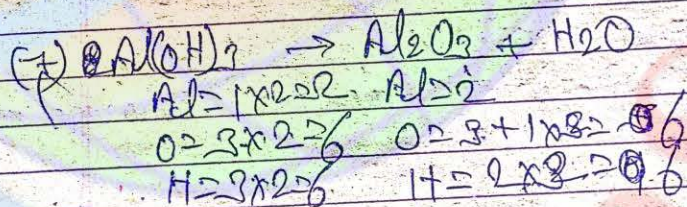 (7) Al(OH)3 → Al2O3 + H2O
Al=1x2=2 Al=2
O=3x2=6 O=3+1x3=6
H=3x2=6 H=2x3=6